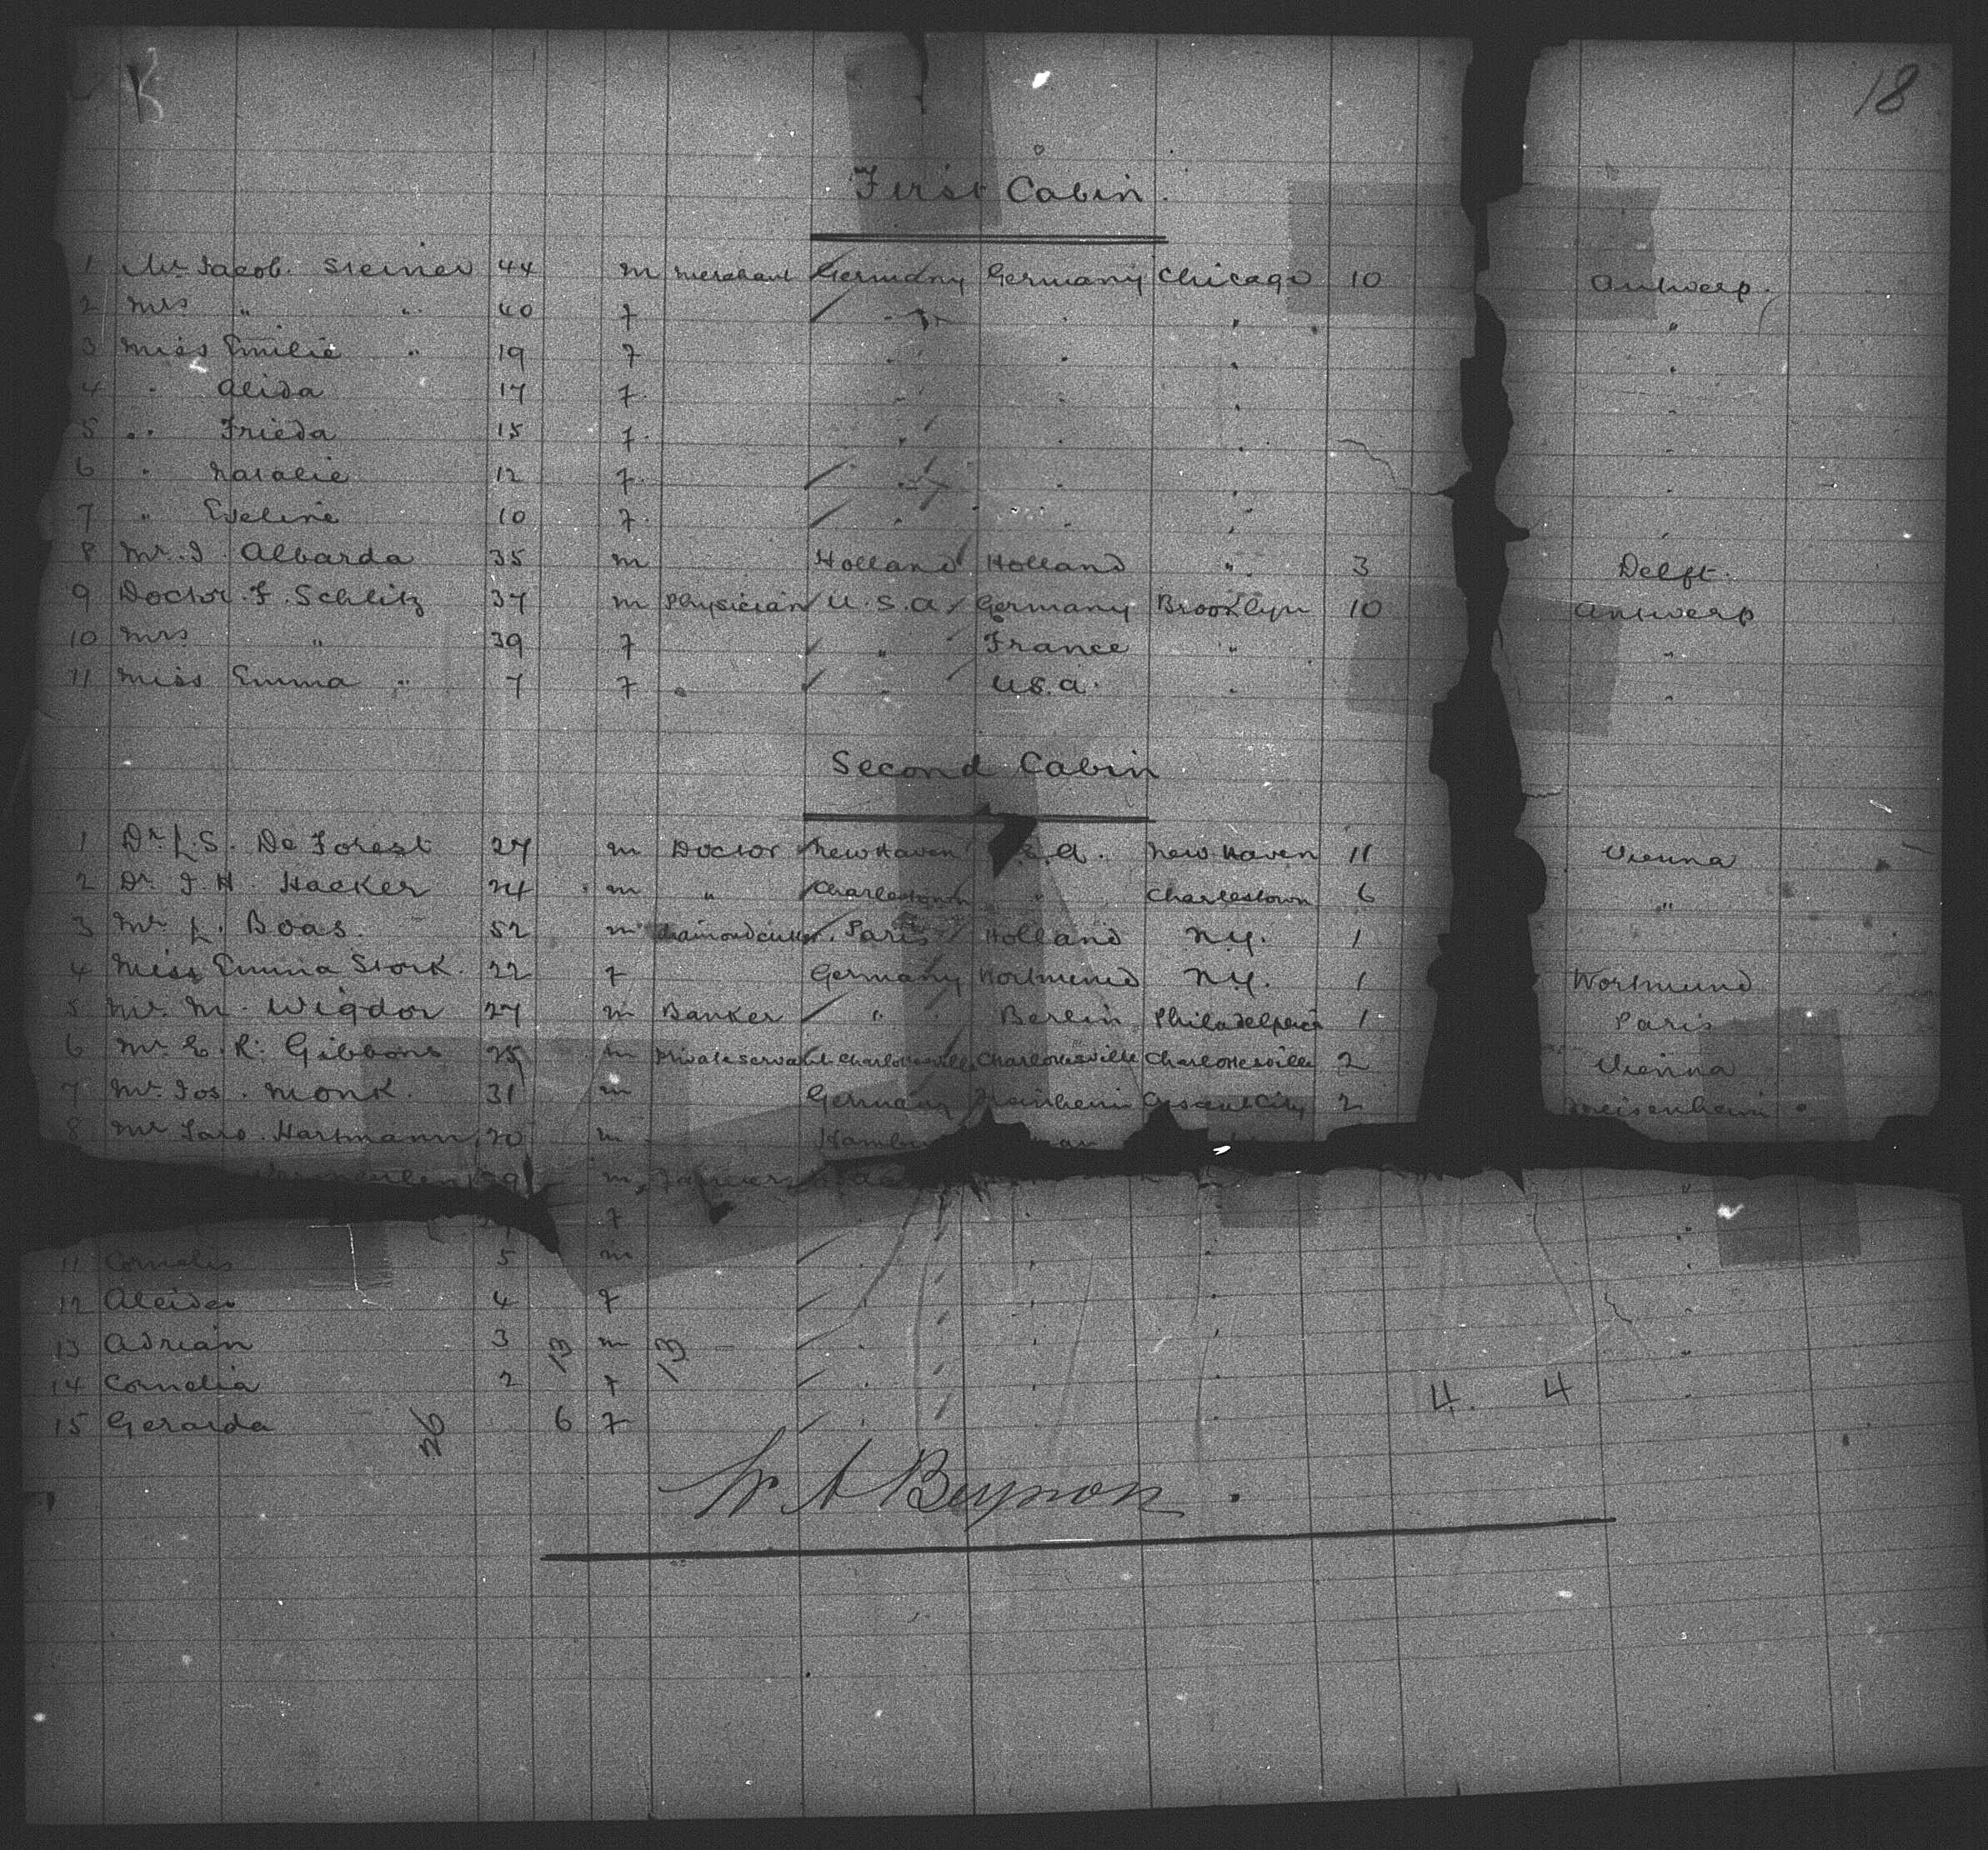 18
First Cabin.
1 Mr Jacob. Steiner 44 m merchant Germany Germany Chicago 10 Antwerp.
2 Mrs " " 40 f " " " "
3 Miss Emilie " 19 f " " " "
4 " Alida 17 f " " " "
5 " Frieda 15 f " " " "
6 " Natalie 12 f " " " "
7 " Eveline 10 f " " " "
8 Mr. J. Albarda 35 m Holland Holland " 3 Delft.
9 Doctor. F. Schlitz 37 m Physician U.S.A. Germany Brooklyn 10 Antwerp
10 Mrs " 39 f " France " "
11 Miss Emma " 7 f " U.S.A. " "
Second Cabin
1 Dr. L.S. De Forest 27 m Doctor New Haven S.A. New Haven 11 Vienna
2 Dr. J.H. Hacker 24 m " Charlestown " Charlestown 6 "
3 Mr L. Boas. 52 m Diamondcutter Paris Holland N.Y. 1
4 Miss Emma Stork. 22 f Germany Wortmund N.Y. 1 Wortmund
5 Mr. M. Wigdor 27 m Banker " Berlin Philadelphia 1 Paris
6 Mr. E. R. Gibbons 25 m Private servant Charlottesville Charlottesville Charlottesville 2 Vienna
7 Mr. Jos. Monk. 31 m Germany 2
8 Mr Hartmann 20 m
m Farmer
f
11 Cornelis 5 m " " " "
12 Aleida 4 f " " " "
13 Adrian 3 13 m 13 " " " "
14 Cornelia 2 f " " " 4. 4 "
15 Gerarda 26 6 f " " "
W. A Beynon.